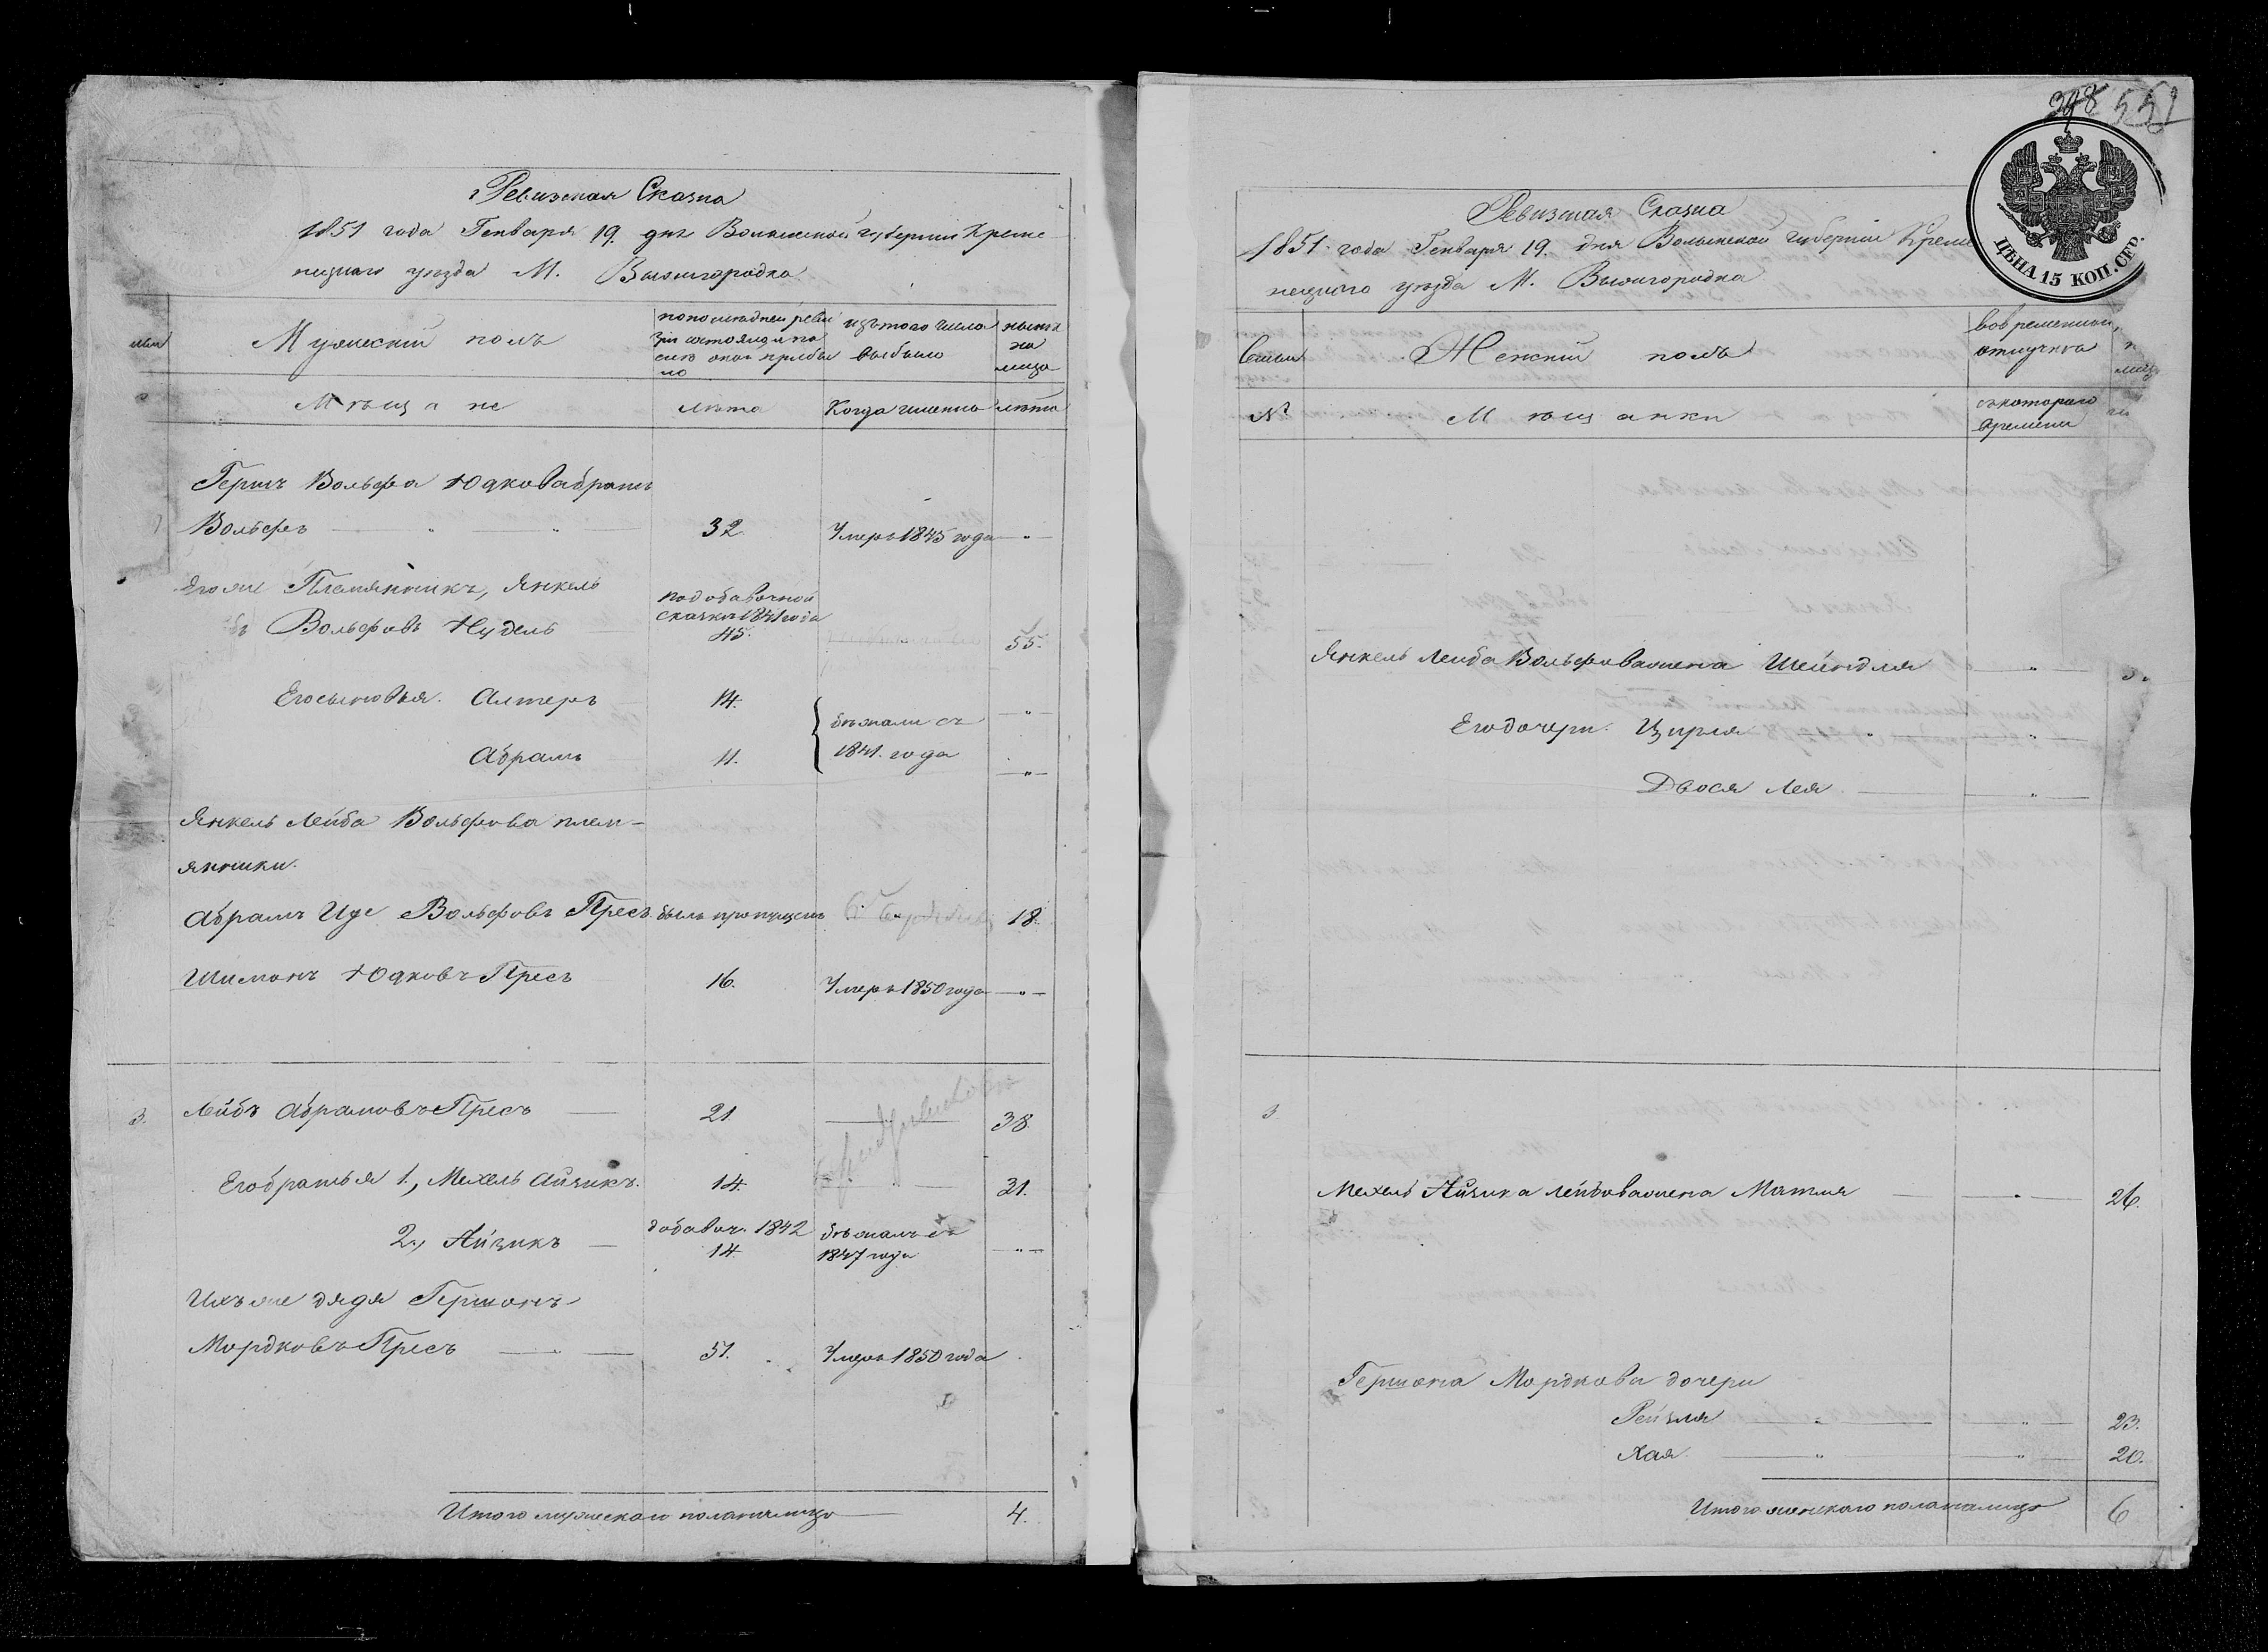 Ревизская Сказка
1851 года Генваря 19. дня Волынской губернии Креме
нецкого уезда М. Вышгородка
Мужеский полъ
по последней реви
зіи состояло и по
сле оной прибы
ло
изъ того числа
выбыло
ныне
на
лицо
Мѣщане
лѣта
Когда именно
лѣта
Гершъ Вольфа Юдкова братъ
Вольфъ
32
Умеръ 1845 года
Его же Племянникъ, Янкель
по добавочной
сказке 1841 года
Вольфовъ Нудель
45.
55.
Его сыновья. Алтеръ
14.
бежали съ
1841. года
Абрамъ
11.
Янкель Лейба Вольфова плем-
янники.
Абрамъ Иде Вольфовъ Пресъ
былъ пропущенъ
18.
Шимонъ Юдковъ Пресъ
16.
Умеръ 1850 года
3.
Лейбъ Абрамовъ Пресъ
21.
38.
Его братья 1., Мехель Айзикъ.
14.
31.
2., Айзикъ
добавоч. 1842
14.
бежалъ съ
1847 года
Ихъ же дядя Гершонъ
Мордковъ Пресъ
51.
Умеръ 1850 года
Итого мужескаго пола на лицо
4.
398 551
ЦѢНА 15 КОП. СЕР.
Ревизская Сказка
1851 года Генваря 19. дня Волынской губерніи Креме
нецкого уезда М. Вышгородка
Семьи
Женскій полъ
во временной
отлучке
№
Мѣщанки
съ котораго
времени
Янкель Лейба Вольфова жена Шейндля
Его дочери. Цирля
Двося Лея
3.
Мехель Айзика Лейбова жена Матля
26.
Гершона Мордкова дочери
Рейзля
23.
Хая
20.
Итого женскаго пола на лицо
6